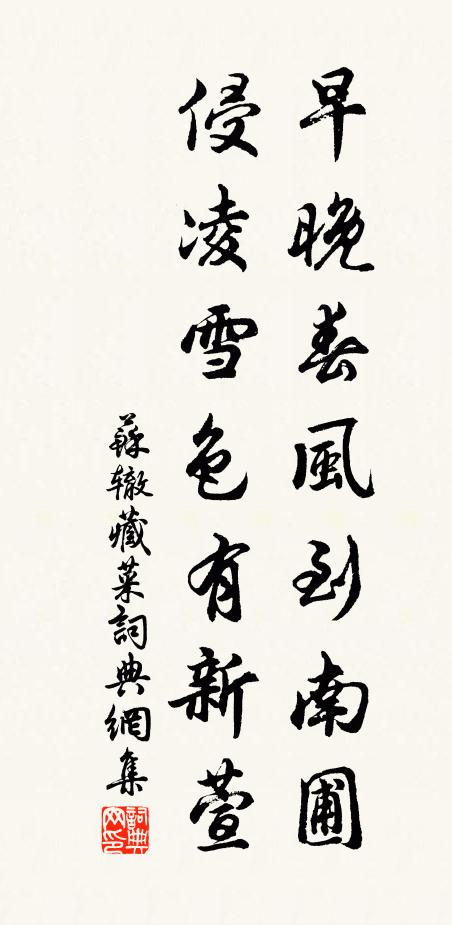 早晚春風到南圃
侵凌雪色有新萱
蘇轍藏菜詞典網集
詞典网印